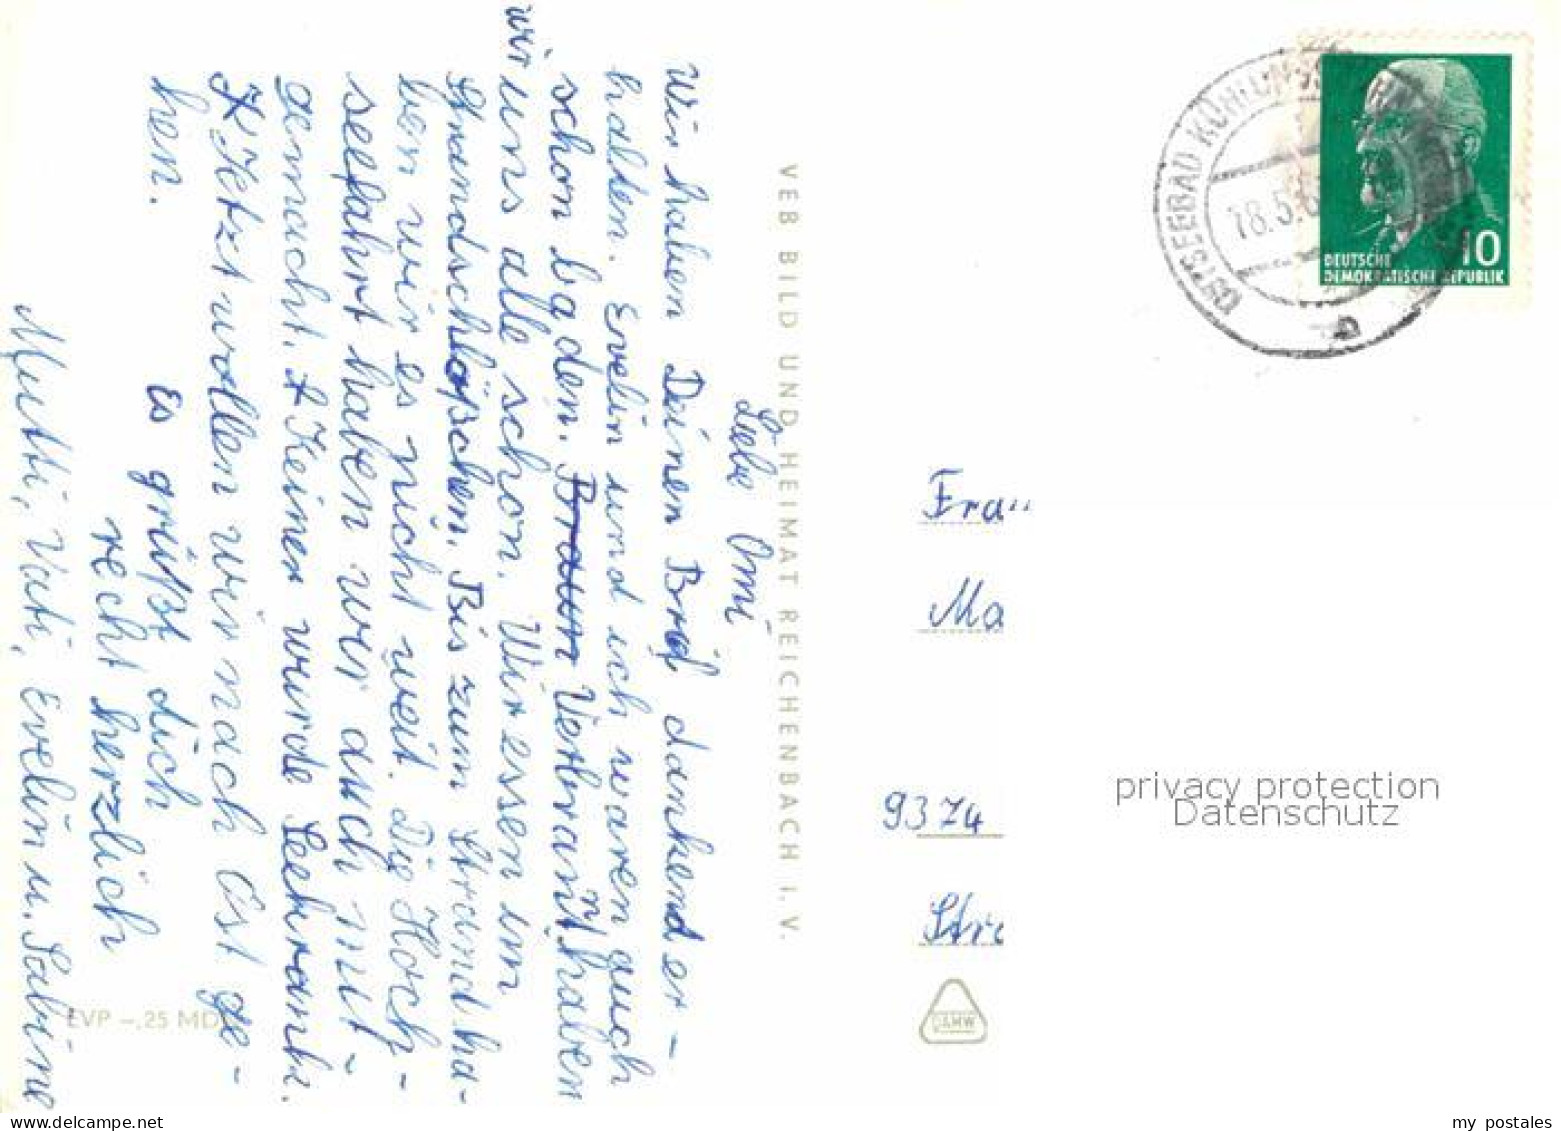 Liebe Omi
Wir haben Deinen Brief dankend er-
halten. Evelin und ich waren auch
schon baden. Braun Verbrannt haben
n
wir uns alle schon. Wir essen im
Strandschlößchen. Bis zum Strand ha-
ben wir es nicht weit. Die Hoch-
seefahrt haben wir auch mit-
gemacht. Keiner wurde Seekrank.
Jetzt wollen wir nach Ost ge-
hen.
Es grüßt dich
recht herzlich
Mutti, Vati, Evelin u. Sabine
VEB BILD UND HEIMAT REICHENBACH I. V.
EVP –,25 MD
OSTSEEBAD KÜHLUNGSBORN
18.5.6
DEUTSCHE
DEMOKRATISCHE REPUBLIK
10
Frau
Ma
9374
Str
privacy protection
Datenschutz
my postales